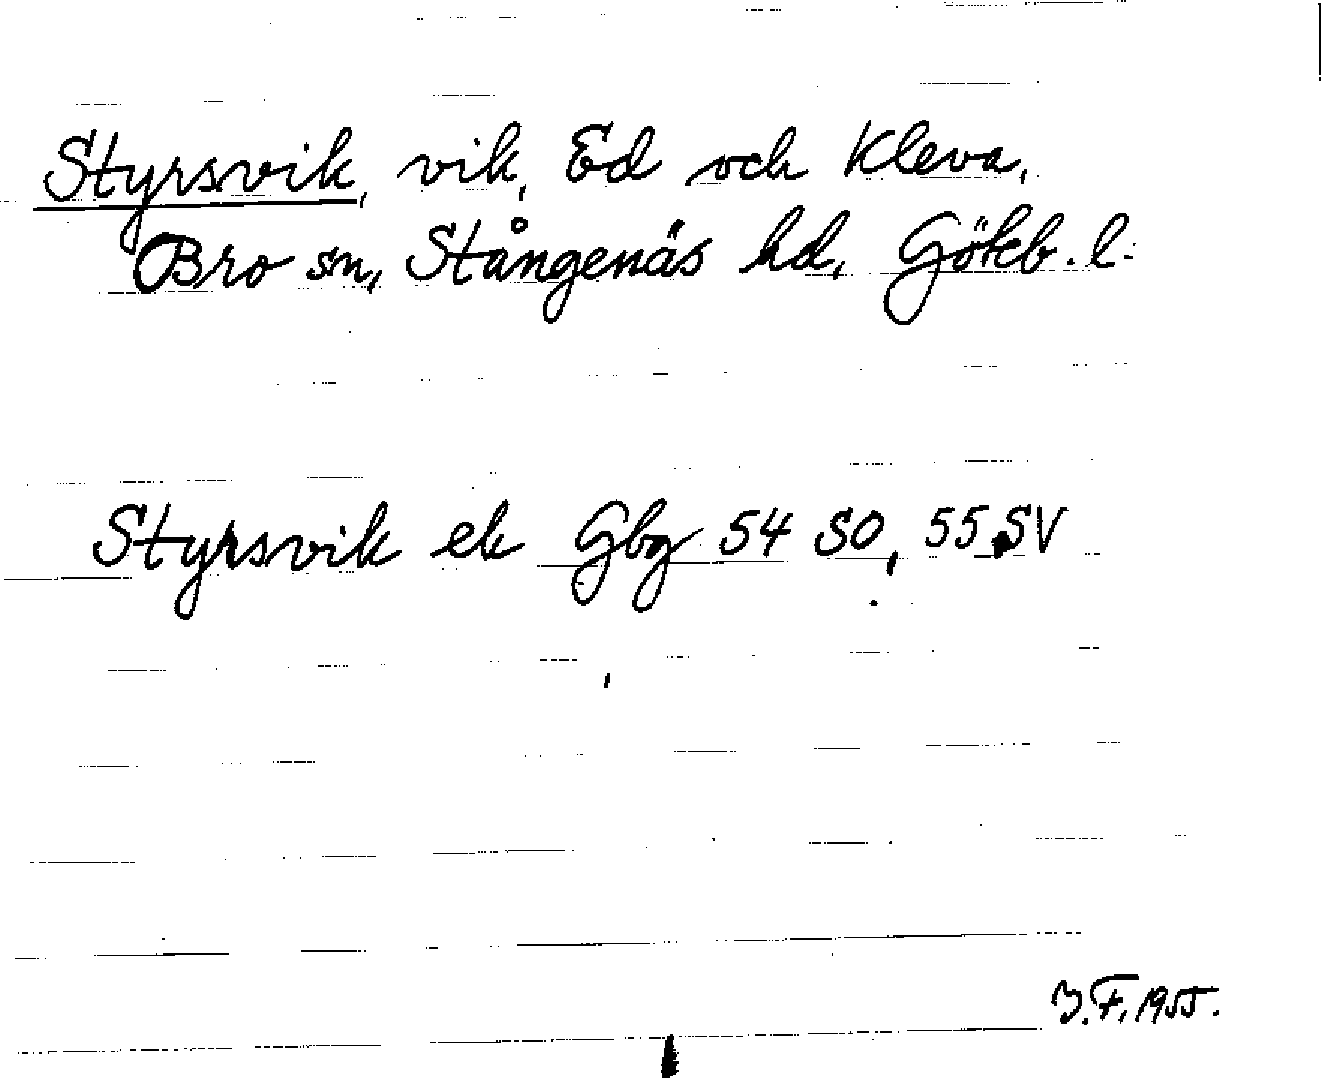 Styrsvik, vik, Ed och Kleva,
Bro sn, Stångenäs hd, Göteb. l.
Styrsvik ek Gbg 54 SO, 55 SV
F. 1955.